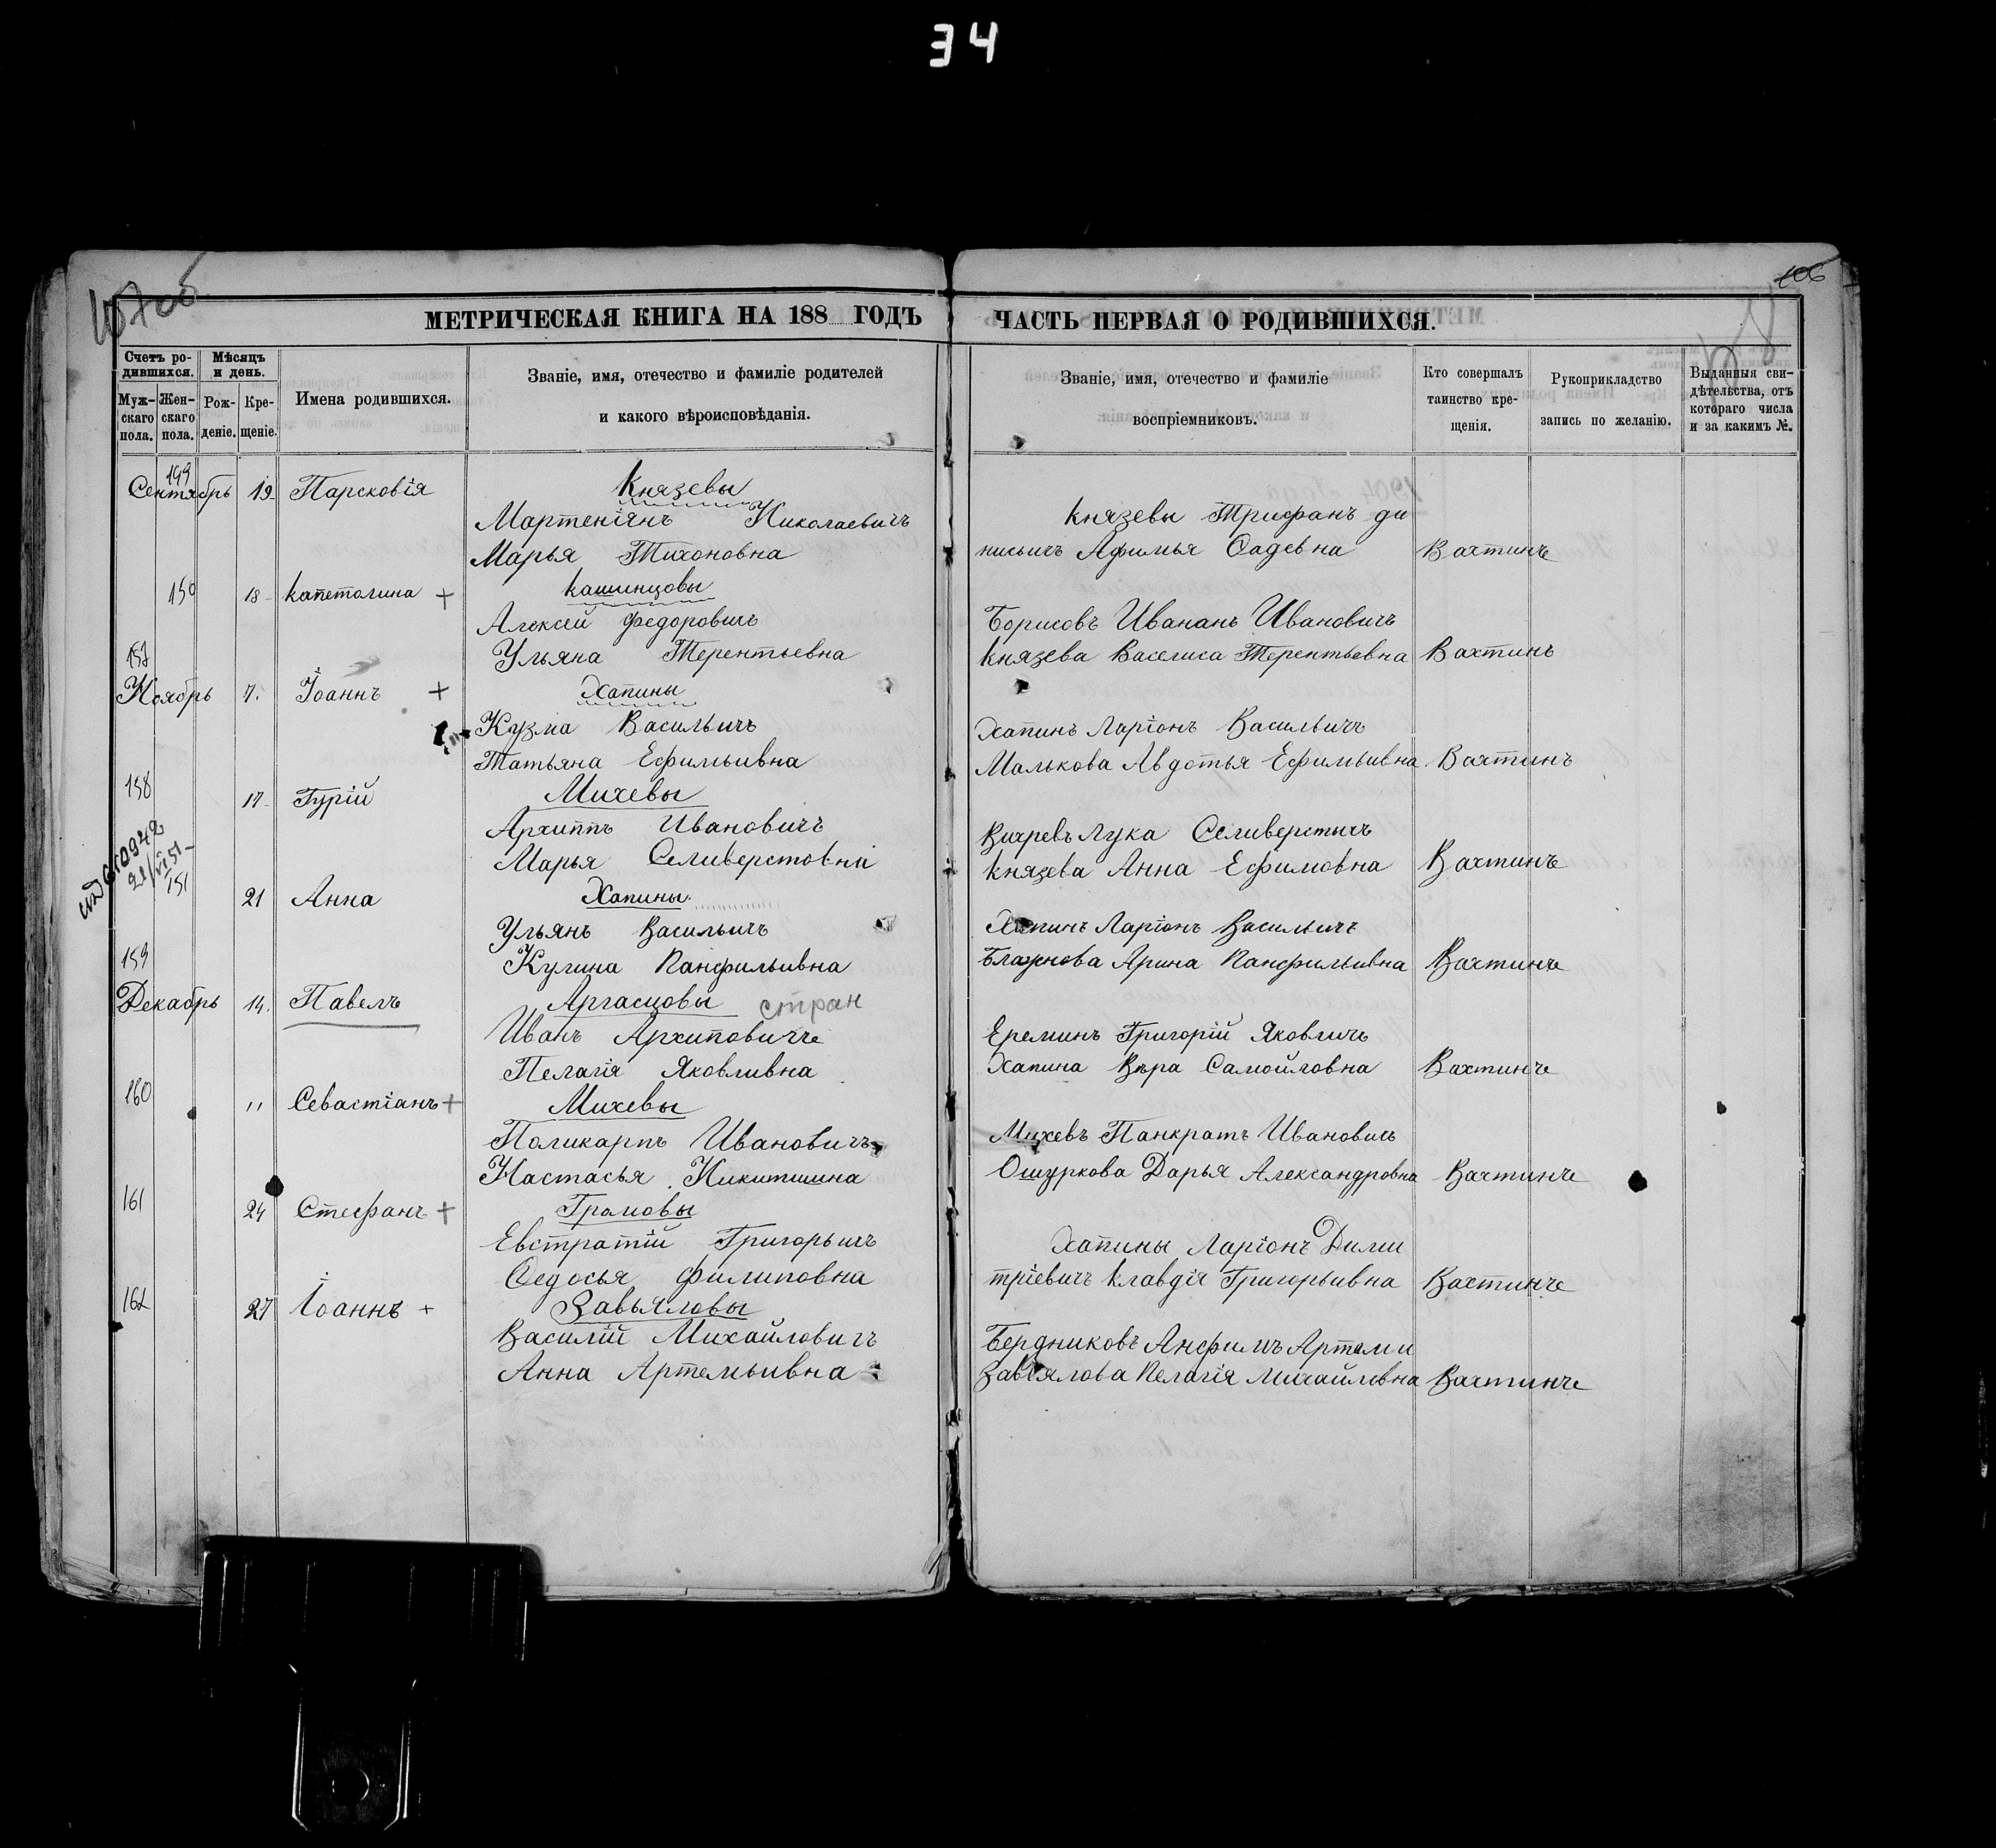 34
107об
106
МЕТРИЧЕСКАЯ КНИГА НА 188 ГОДЪ
ЧАСТЬ ПЕРВАЯ О РОДИВШИХСЯ.
Счетъ родившихся.
Мѣсяцъ и день.
Мужскаго пола.
Женскаго пола.
Рожденіе.
Крещеніе.
Имена родившихся.
Званіе, имя, отечество и фамиліе родителей
и какого вѣроисповѣданія.
Званіе, имя, отечество и фамиліе
воспріемниковъ.
Кто совершалъ таинство крещенія.
Рукоприкладство
запись по желанію.
Выданныя свидѣтельства, отъ котораго числа и за какимъ №.
149
Сентябрь 19 Парсковія Князевы
Мартеніянъ Николаевичъ Князевы Трифанъ ди
Марья Тихоновна нисьичъ Афимья Фадевна Вахтинъ
150 18 Капетолина + Кашинцовы
Алексей Федоровичъ Борисовъ Иванан Ивановичъ
157 Ульяна Терентьевна Князева Васелиса Терентьевна Вахтинъ
Ноябрь 7. Іоаннъ + Хапины
Кузма Васильичъ Хапинъ Ларіонъ Васильичъ
Татьяна Ефимьивна Малькова Авдотья Ефимьивна Вахтинъ
158 17 Гурій Михевы
Архиппъ Ивановичъ Вихревъ Лука Селиверстычъ
Марья Селиверстовна Князева Анна Ефимовна Вахтинъ
21/VI 51
151 21 Анна Хапины
Ульянъ Васильичъ Хапинъ Ларіонъ Васильичъ
159 Кулина Панфильивна Блажнова Арина Панфильивна Вахтинъ
Декабрь 14. Павелъ Аргасцовы стран
Иванъ Архиповичъ Ереминъ Григорій Яковличъ
Пелагія Яковливна Хапина Вѣра Самойловна Вахтинъ
160 11 Севастіанъ + Михевы
Поликарпъ Ивановичъ Михевъ Панкратъ Ивановичъ
Настасья Никитишна Ошуркова Дарья Александровна Вахтинъ
161 24 Стефанъ + Громовы
Евстратій Григорьичъ Хапины Ларіонъ Дими
Федосья Филиповна тріевичъ Клавдія Григорьивна Вахтинъ
162 27 Іоаннъ + Завьяловы
Василій Михайловичъ Бердниковъ Анфимъ Артеми
Анна Артемьивна Завьялова Пелагія Михайловна Вахтинъ